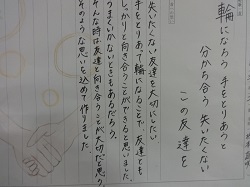 輪になろう 手をとりあって
分かち合う 失いたくない
この友達を
失いたくない友達を大切にしたい。
手をとりあって輪になることで、友達とも
しっかりと向き合うことができると思いました。
うまくいかないときもあるだろう。
そんな時は友達と向き合うことが大切だと思う。
そのような思いを込めて作りました。